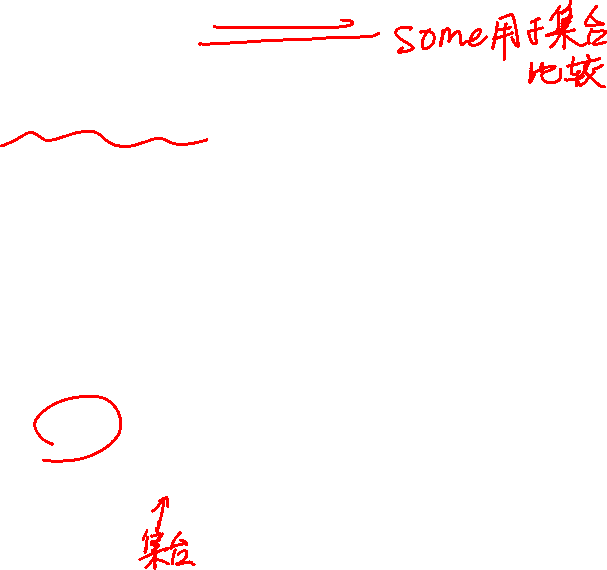 some用于集合
比较
集合